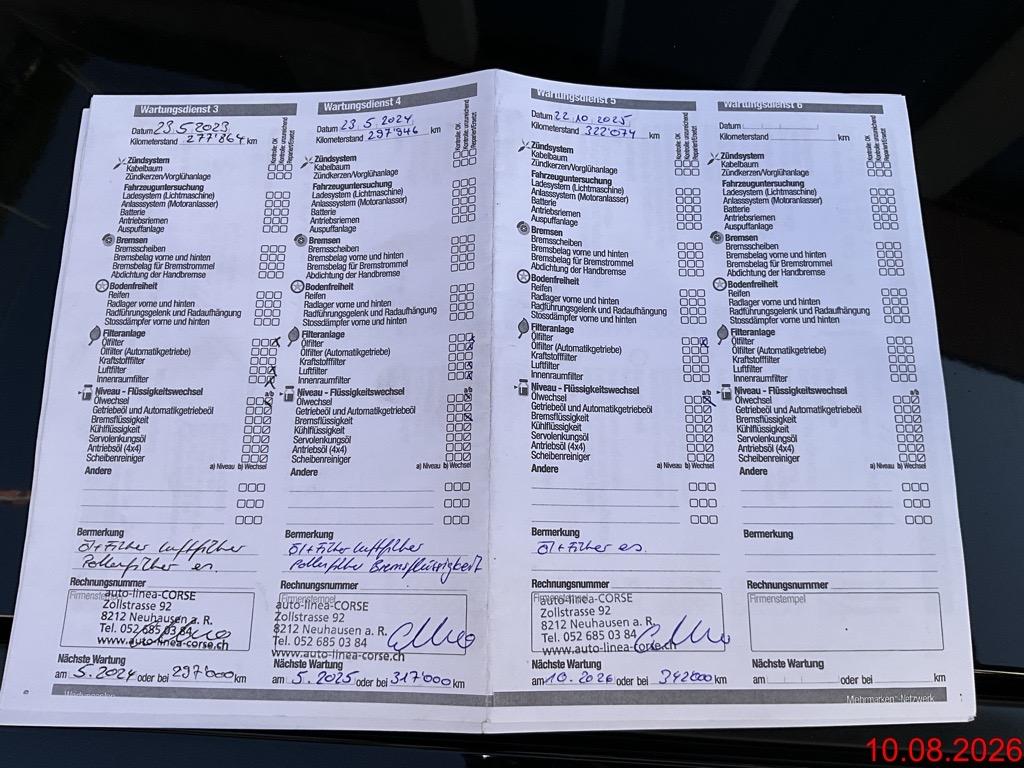 Wartungsdienst 3
Datum 23.5.2023
Kilometerstand 277'864 km
Kontrolle OK
Kontrolle: unzureichend
Repariert/Ersetzt
Zündsystem
Kabelbaum
Zündkerzen/Vorglühanlage
Fahrzeuguntersuchung
Ladesystem (Lichtmaschine)
Anlasssystem (Motoranlasser)
Batterie
Antriebsriemen
Auspuffanlage
Bremsen
Bremsscheiben
Bremsbelag vorne und hinten
Bremsbelag für Bremstrommel
Abdichtung der Handbremse
Bodenfreiheit
Reifen
Radlager vorne und hinten
Radführungsgelenk und Radaufhängung
Stossdämpfer vorne und hinten
Filteranlage
Ölfilter
Ölfilter (Automatikgetriebe)
Kraftstofffilter
Luftfilter
Innenraumfilter
Niveau - Flüssigkeitswechsel
Ölwechsel
Getriebeöl und Automatikgetriebeöl
Bremsflüssigkeit
Kühlflüssigkeit
Servolenkungsöl
Antriebsöl (4x4)
Scheibenreiniger
a) Niveau b) Wechsel
Andere
Bermerkung
Öl+Filter Luftfilter
Pollenfilter er.
Rechnungsnummer
Firmenstempel
auto-linea-CORSE
Zollstrasse 92
8212 Neuhausen a. R.
Tel. 052 685 03 84
www.auto-linea-corse.ch
Nächste Wartung
am 5.2024 oder bei 297'000 km
Wartungsdienst 4
Datum 23.5.2024
Kilometerstand 297'946 km
Kontrolle OK
Kontrolle: unzureichend
Repariert/Ersetzt
Zündsystem
Kabelbaum
Zündkerzen/Vorglühanlage
Fahrzeuguntersuchung
Ladesystem (Lichtmaschine)
Anlasssystem (Motoranlasser)
Batterie
Antriebsriemen
Auspuffanlage
Bremsen
Bremsscheiben
Bremsbelag vorne und hinten
Bremsbelag für Bremstrommel
Abdichtung der Handbremse
Bodenfreiheit
Reifen
Radlager vorne und hinten
Radführungsgelenk und Radaufhängung
Stossdämpfer vorne und hinten
Filteranlage
Ölfilter
Ölfilter (Automatikgetriebe)
Kraftstofffilter
Luftfilter
Innenraumfilter
Niveau - Flüssigkeitswechsel
Ölwechsel
Getriebeöl und Automatikgetriebeöl
Bremsflüssigkeit
Kühlflüssigkeit
Servolenkungsöl
Antriebsöl (4x4)
Scheibenreiniger
a) Niveau b) Wechsel
Andere
Bermerkung
Öl+Filter Luftfilter
Pollenfilter Bremsflüssigkeit
Rechnungsnummer
Firmenstempel
auto-linea-CORSE
Zollstrasse 92
8212 Neuhausen a. R.
Tel. 052 685 03 84
www.auto-linea-corse.ch
Nächste Wartung
am 5.2025 oder bei 317'000 km
Wartungsdienst 5
Datum 22.10.2025
Kilometerstand 322'074 km
Kontrolle OK
Kontrolle: unzureichend
Repariert/Ersetzt
Zündsystem
Kabelbaum
Zündkerzen/Vorglühanlage
Fahrzeuguntersuchung
Ladesystem (Lichtmaschine)
Anlasssystem (Motoranlasser)
Batterie
Antriebsriemen
Auspuffanlage
Bremsen
Bremsscheiben
Bremsbelag vorne und hinten
Bremsbelag für Bremstrommel
Abdichtung der Handbremse
Bodenfreiheit
Reifen
Radlager vorne und hinten
Radführungsgelenk und Radaufhängung
Stossdämpfer vorne und hinten
Filteranlage
Ölfilter
Ölfilter (Automatikgetriebe)
Kraftstofffilter
Luftfilter
Innenraumfilter
Niveau - Flüssigkeitswechsel
Ölwechsel
Getriebeöl und Automatikgetriebeöl
Bremsflüssigkeit
Kühlflüssigkeit
Servolenkungsöl
Antriebsöl (4x4)
Scheibenreiniger
a) Niveau b) Wechsel
Andere
Bermerkung
Öl+Filter er.
Rechnungsnummer
Firmenstempel
auto-linea-CORSE
Zollstrasse 92
8212 Neuhausen a. R.
Tel. 052 685 03 84
www.auto-linea-corse.ch
Nächste Wartung
am 10.2026 oder bei 342'000 km
Wartungsdienst 6
Datum
Kilometerstand km
Kontrolle OK
Kontrolle: unzureichend
Repariert/Ersetzt
Zündsystem
Kabelbaum
Zündkerzen/Vorglühanlage
Fahrzeuguntersuchung
Ladesystem (Lichtmaschine)
Anlasssystem (Motoranlasser)
Batterie
Antriebsriemen
Auspuffanlage
Bremsen
Bremsscheiben
Bremsbelag vorne und hinten
Bremsbelag für Bremstrommel
Abdichtung der Handbremse
Bodenfreiheit
Reifen
Radlager vorne und hinten
Radführungsgelenk und Radaufhängung
Stossdämpfer vorne und hinten
Filteranlage
Ölfilter
Ölfilter (Automatikgetriebe)
Kraftstofffilter
Luftfilter
Innenraumfilter
Niveau - Flüssigkeitswechsel
Ölwechsel
Getriebeöl und Automatikgetriebeöl
Bremsflüssigkeit
Kühlflüssigkeit
Servolenkungsöl
Antriebsöl (4x4)
Scheibenreiniger
a) Niveau b) Wechsel
Andere
Bermerkung
Rechnungsnummer
Firmenstempel
Nächste Wartung
am oder bei km
Wartungsplan
Mehrmarken-Netzwerk
10.08.2026